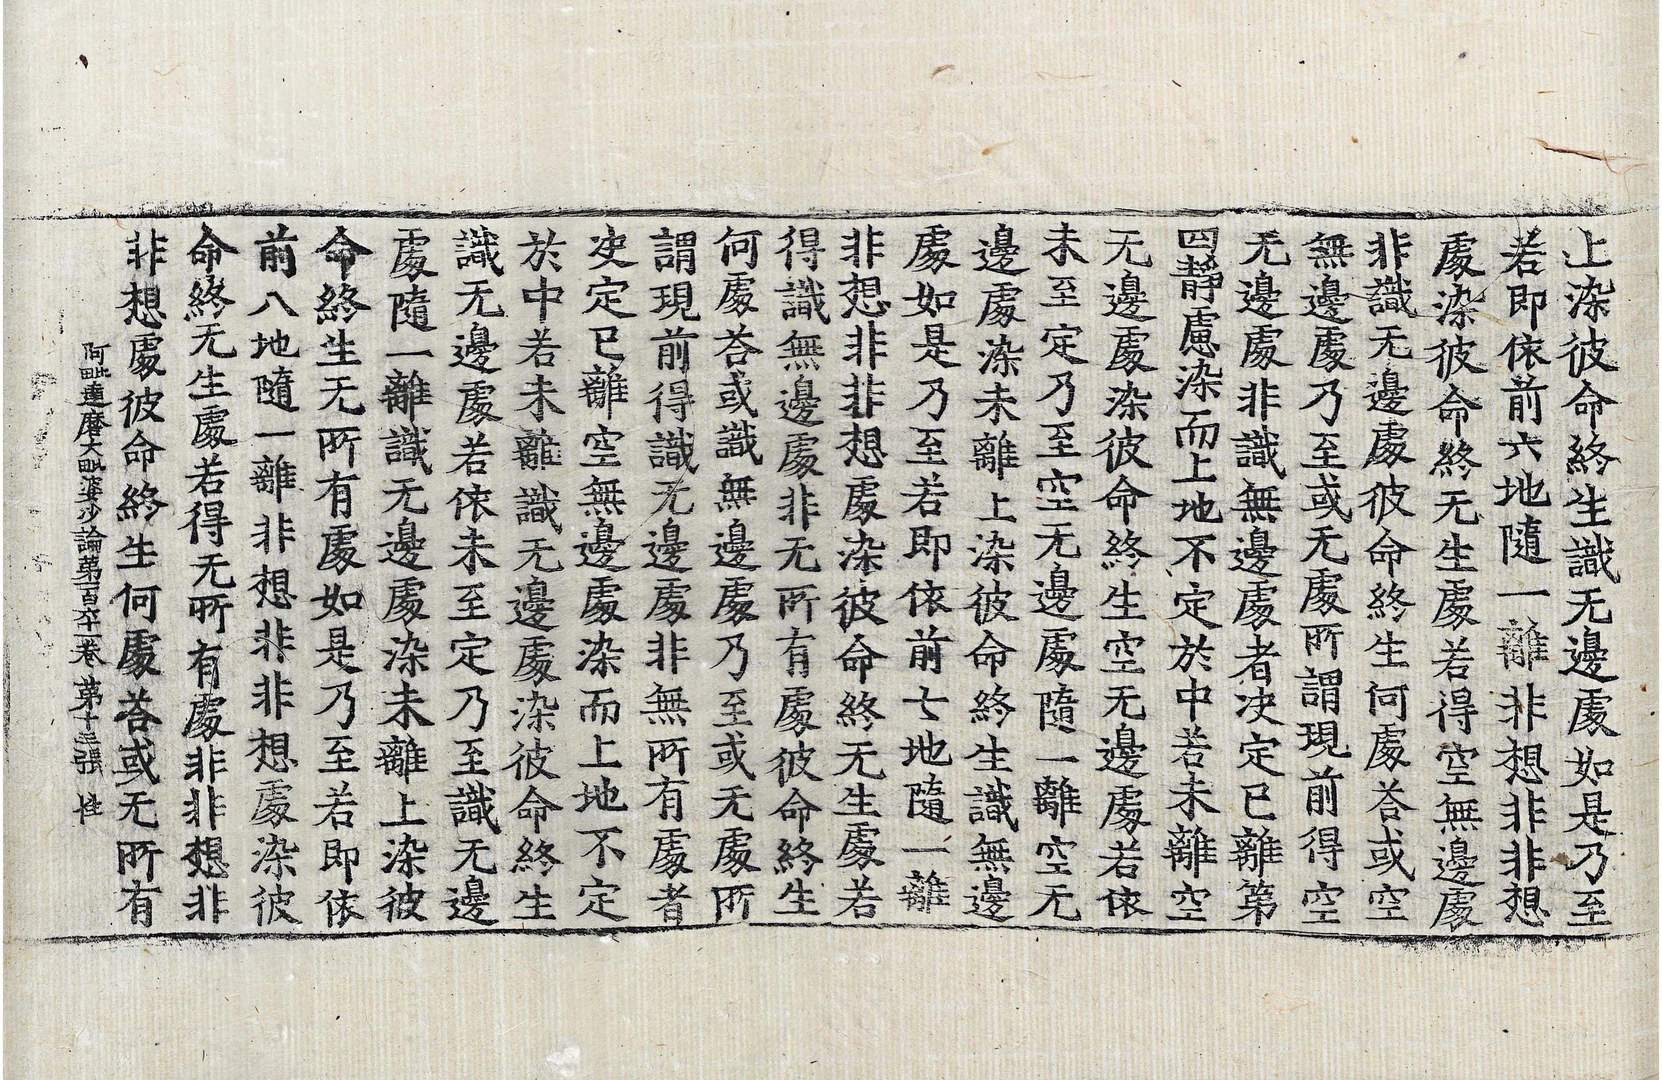 上染彼命終生識无邊處如是乃至
若即依前六地隨一離非想非非想
處染彼命終无生處若得空無邊處
非識无邊處彼命終生何處荅或空
無邊處乃至或无處所謂現前得空
无邊處非識無邊處者決定已離第
四靜慮染而上地不定於中若未離空
无邊處染彼命終生空无邊處若依
未至定乃至空无邊處隨一離空无
邊處染未離上染彼命終生識無邊
處如是乃至若即依前七地隨一離
非想非非想處染彼命終无生處若
得識無邊處非无所有處彼命終生
何處荅或識無邊處乃至或无處所
謂現前得識无邊處非無所有處者
決定已離空無邊處染而上地不定
於中若未離識无邊處染彼命終生
識无邊處若依未至定乃至識无邊
處隨一離識无邊處染未離上染彼
命終生无所有處如是乃至若即依
前八地隨一離非想非非想處染彼
命終无生處若得无所有處非非想非
非想處彼命終生何處荅或无所有
阿毗達磨大毗婆沙論第一百六十一卷 第十三張 性